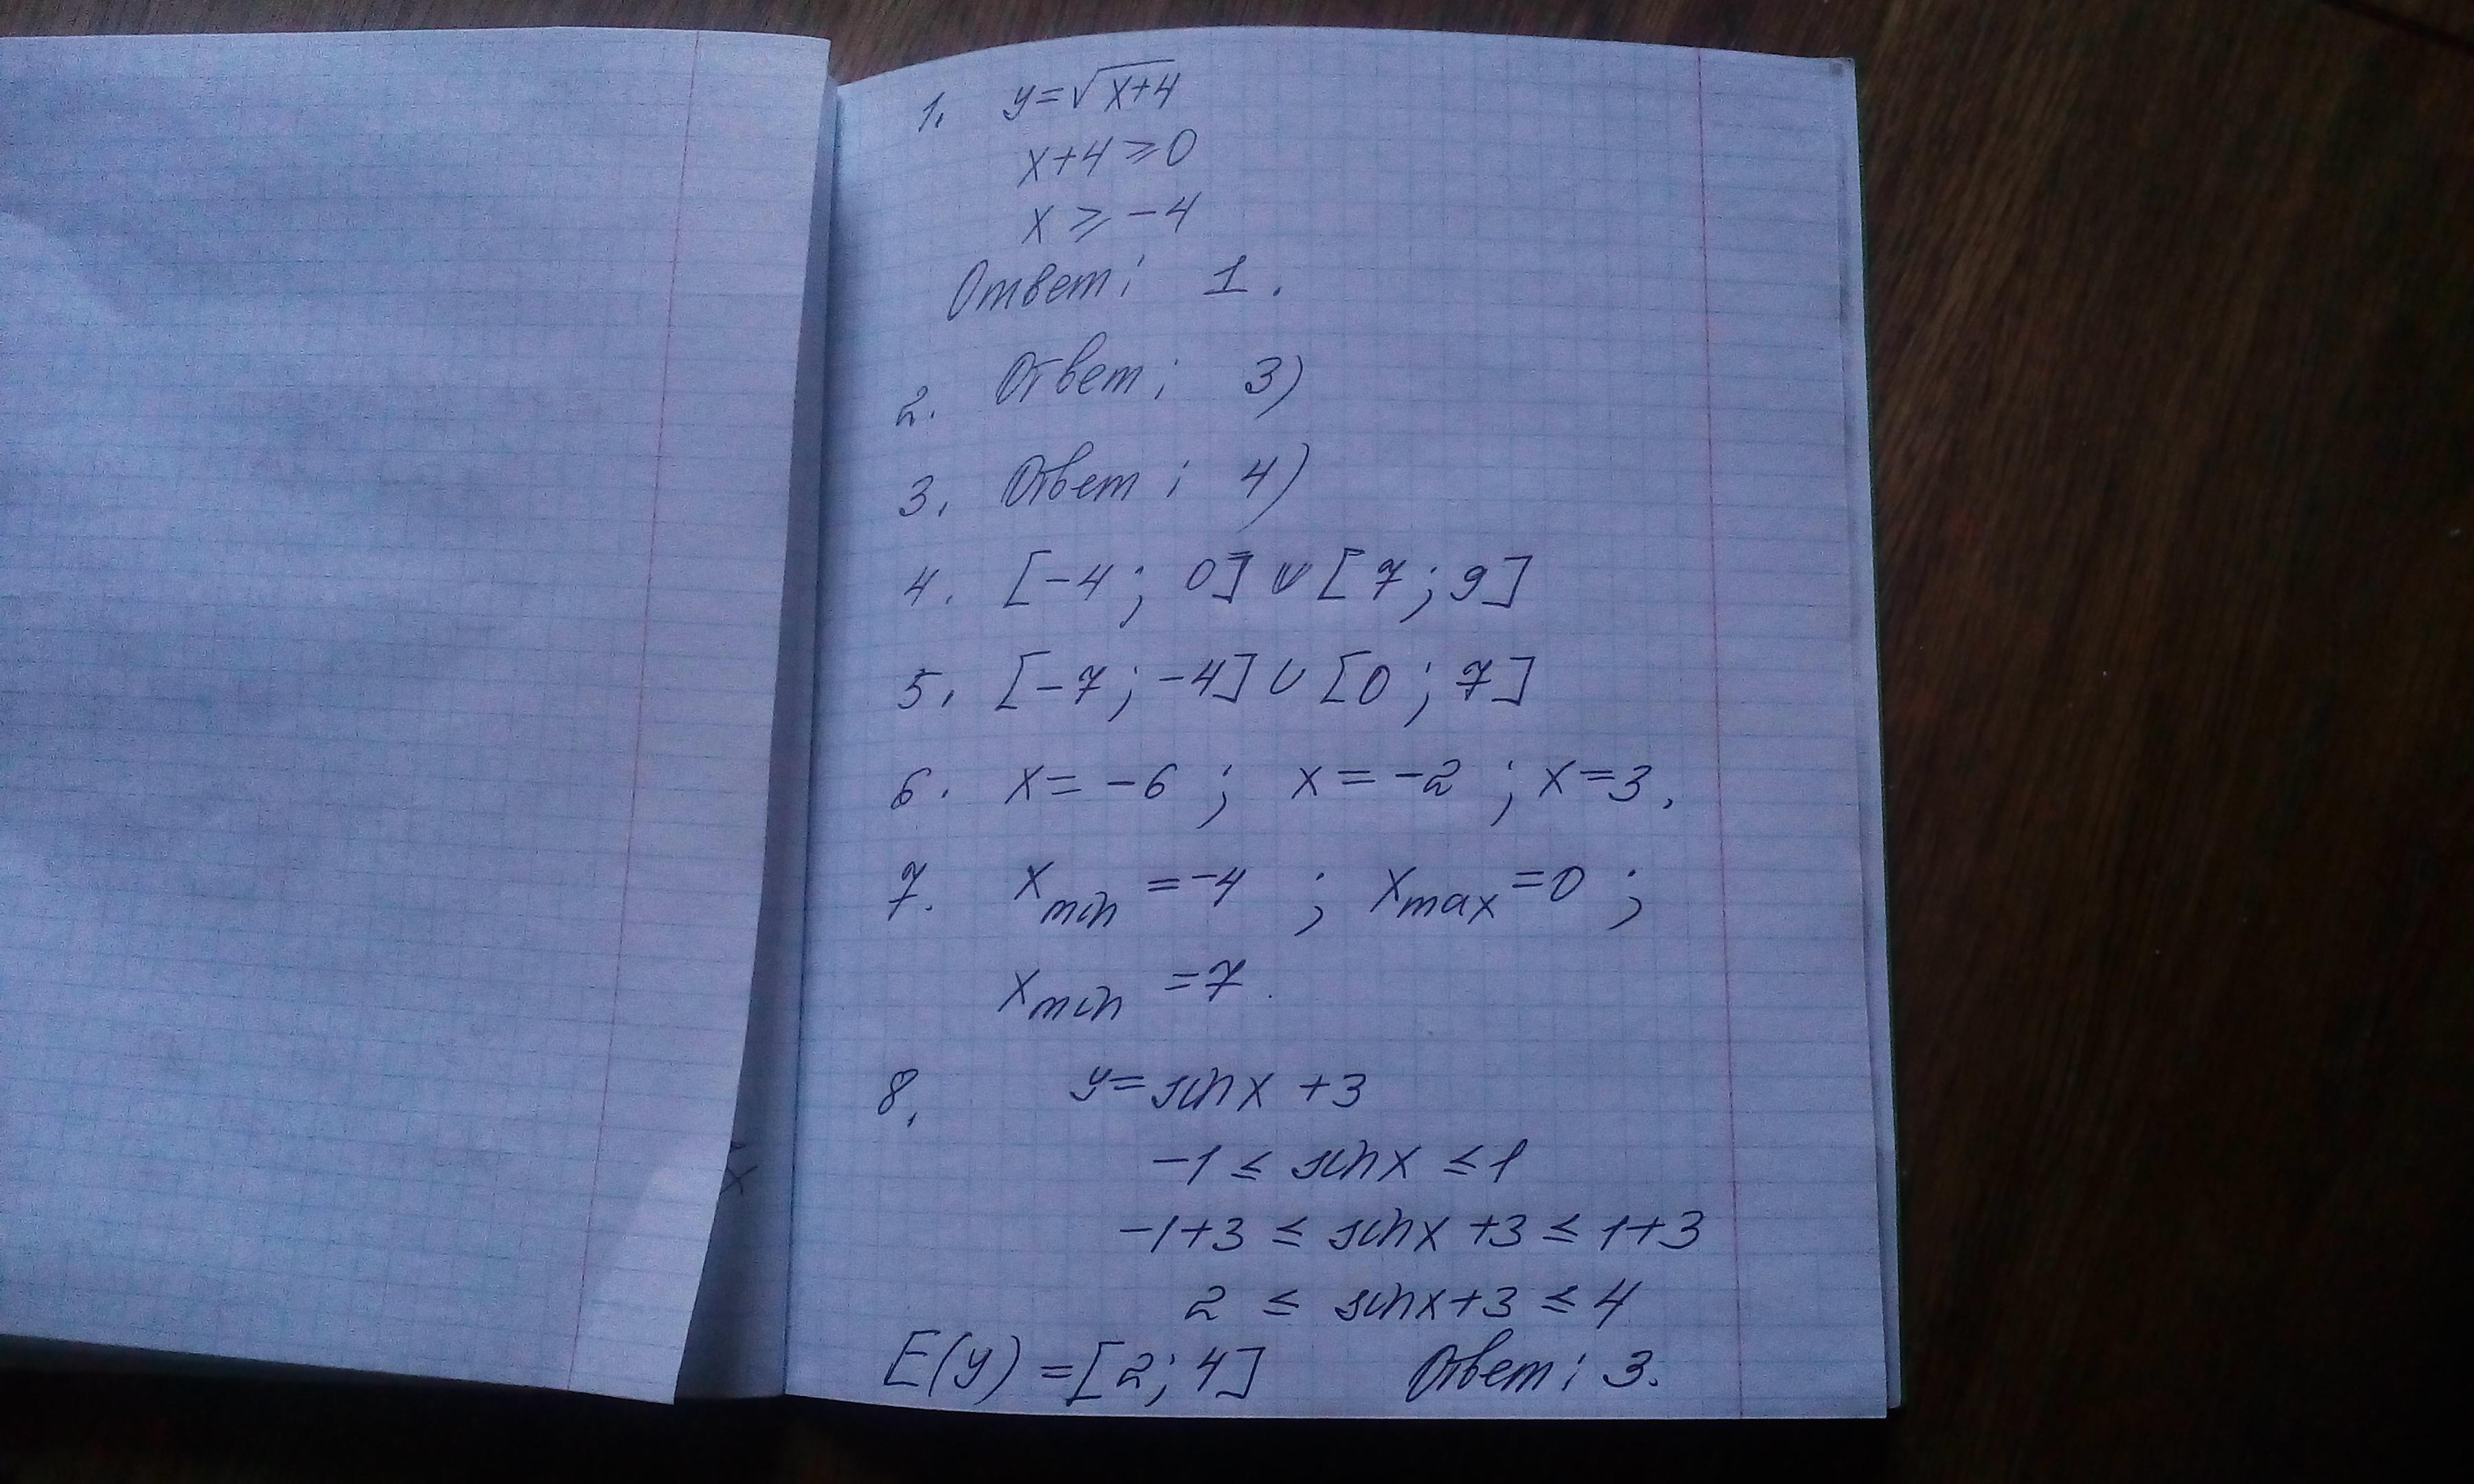 1. y=√x+4
x+4≥0
x≥-4
Ответ: 1.
2. Ответ: 3)
3. Ответ: 4)
4. [-4; 0]∪[7; 9]
5. [-7; -4]∪[0; 7]
6. x=-6; x=-2; x=3.
7. xmin=-4; xmax=0;
xmin=7.
8. y=sinx+3
-1≤sinx≤1
-1+3≤sinx+3≤1+3
2≤sinx+3≤4
E(y)=[2; 4] Ответ: 3.